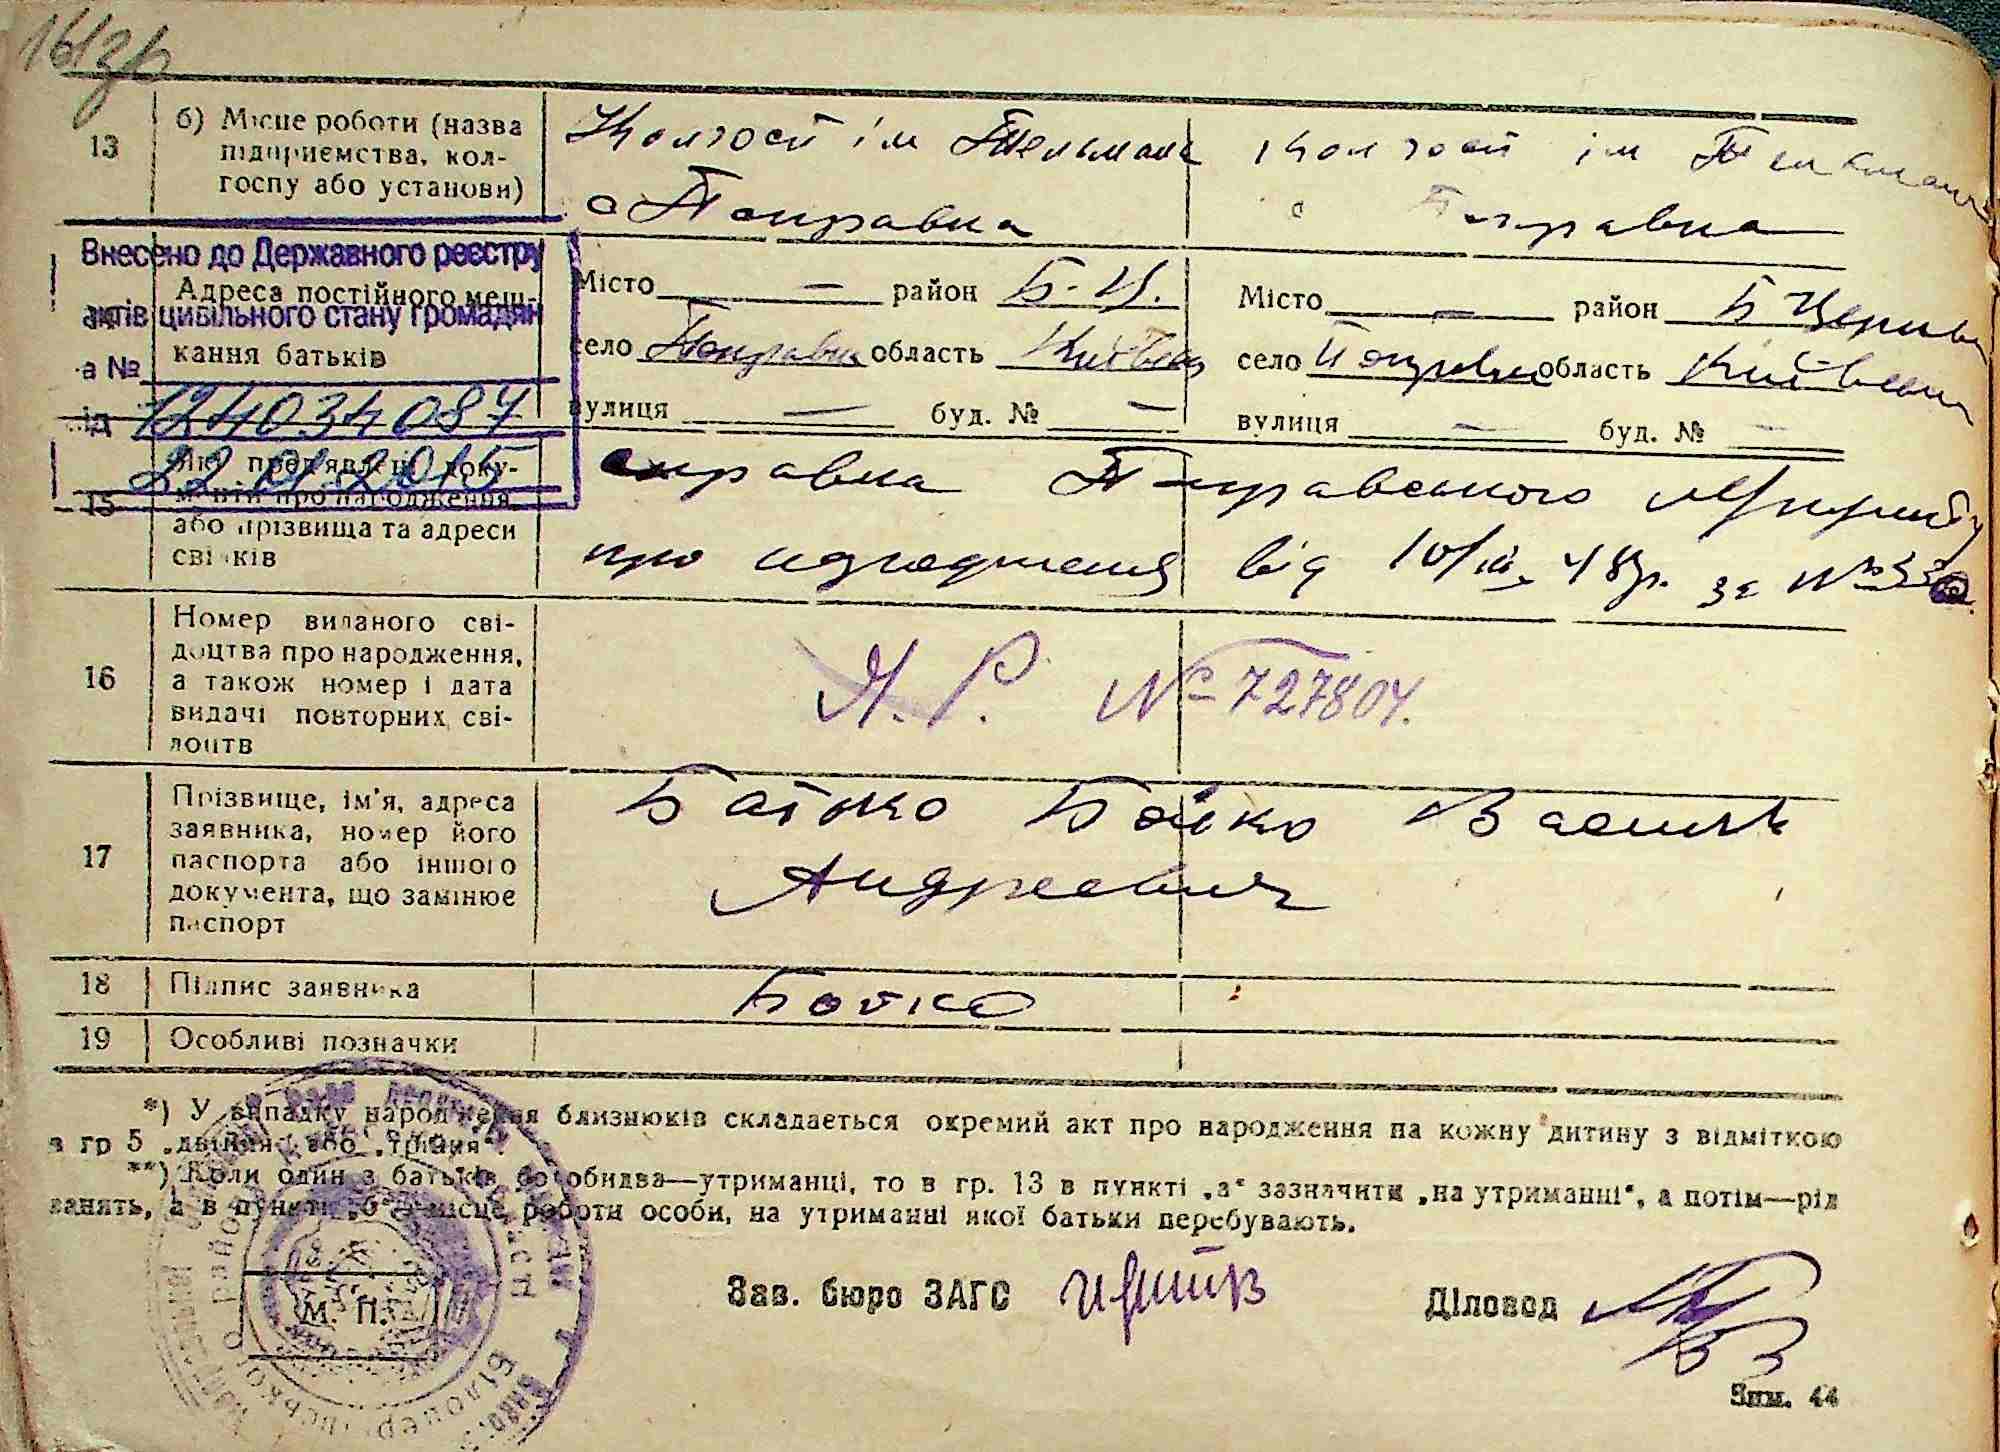 161зв
13 б) Місце роботи (назва підприємства, колгоспу або установи)
Колгосп ім Тельмана
с Поправка
Колгосп ім Тельмана
с Поправка
Внесено до Державного реєстру
актів цивільного стану громадян
за №
124034087
від 22.01.2015
Адреса постійного меш-
кання батьків
Місто — район Б-Ц.
село Поправка область Київськ
вулиця — буд. № —
Місто — район Б Церків
село Поправка область Київськ
вулиця — буд. № —
15 Які пред'явлені доку-
менти про народження
або прізвища та адреси
свідків
справка Поправського
про народження від 10/III 48р. за №
16 Номер виданого сві-
доцтва про народження,
а також номер і дата
видачі повторних сві-
доцтв
Я. Р. № 727804.
17 Прізвище, ім'я, адреса
заявника, номер його
паспорта або іншого
документа, що замінює
паспорт
Батько Бойко Василь
Андреевич
18 Підпис заявника
Бойко
19 Особливі позначки
*) У випадку народження близнюків складається окремий акт про народження на кожну дитину з відміткою
в гр 5 „двійня“ або „трійня“.
**) Коли один з батьків або обидва—утриманці, то в гр. 13 в пункті „а“ зазначити „на утриманні“, а потім—рід
занять, а в пункті „б“—місце роботи особи, на утриманні якої батьки перебувають.
М. П.
Зав. бюро ЗАГС
Діловод
Зам. 44